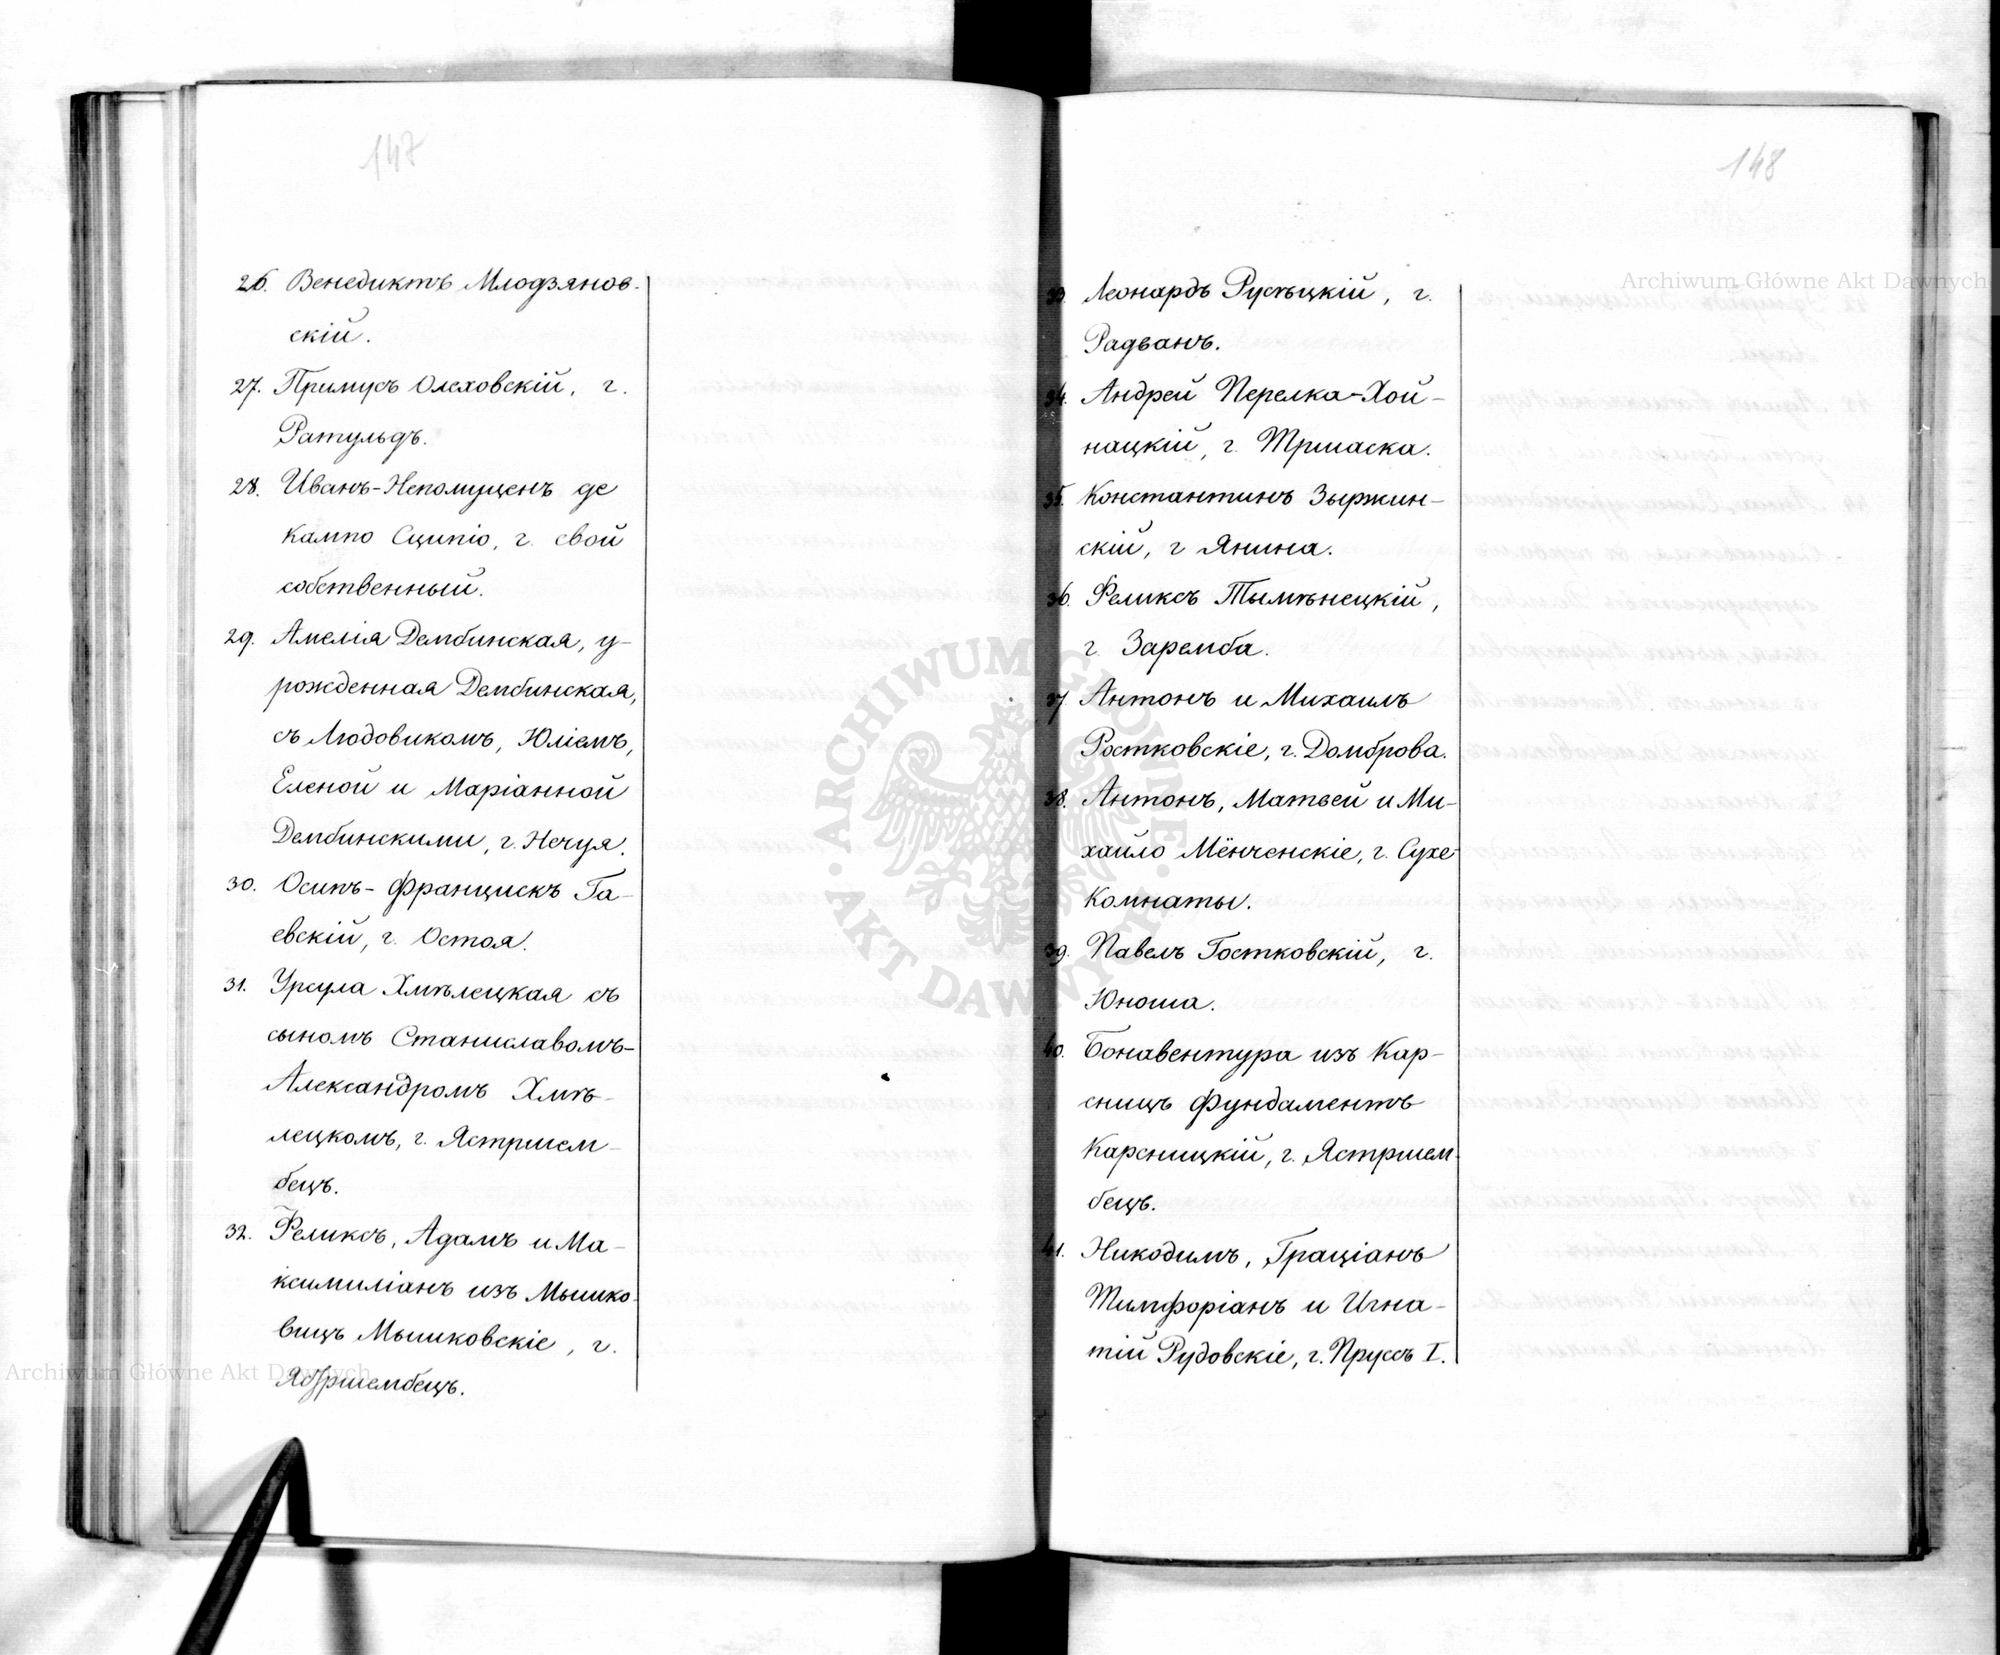 147
26. Венедиктъ Млодзянов-
скій.
27. Примусъ Олеховскій, г.
Ратульдъ.
28. Иванъ-Непомуценъ де
Кампо Сципіо, г. свой
собственный.
29. Амелія Дембинская, у-
рожденная Дембинская,
съ Людовикомъ, Юліемъ,
Еленой и Маріанной
Дембинскими, г. Нечуя.
30. Осипъ-Францискъ Га-
евскій, г. Остоя.
31. Урсула Хмѣлецкая съ
сыномъ Станиславомъ-
Александромъ Хмѣ-
лецкомъ, г. Ястршем-
бецъ.
32. Феликсъ, Адамъ и Ма-
ксимиліанъ изъ Мышко-
вицъ Мышковскіе, г.
Ястршембецъ.
148
33. Леонардъ Русѣцкій, г.
Радванъ.
34. Андрей Перелка-Хой-
нацкій, г. Тршаска.
35. Константинъ Зыржин-
скій, г Янина.
36. Феликсъ Тымѣнецкій,
г. Заремба.
37 Антонъ и Михаилъ
Ростковскіе, г. Домброва.
38. Антонъ, Матвей и Ми-
хайло Мёнченскіе, г. Сухе-
Комнаты.
39. Павелъ Гостковскій, г.
Юноша.
40. Бонавентура изъ Кар-
сницъ Фундаментъ
Карсницкій, г. Ястршем-
бецъ.
41. Никодимъ, Граціанъ
Тимфоріанъ и Игна-
тій Рудовскіе, г. Пруссъ I.
Archiwum Główne Akt Dawnych
ARCHIWUM GŁÓWNE AKT DAWNYCH
Archiwum Główne Akt Dawnych